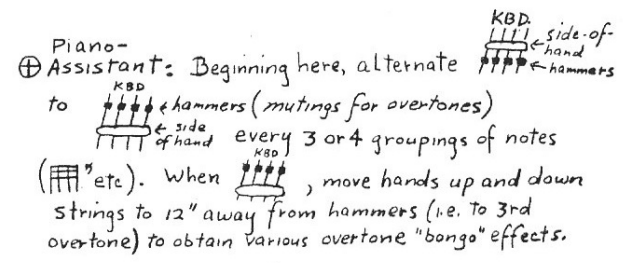 KBD.
Piano-
⊕ Assistant: Beginning here, alternate ← side-of-hand ← hammers
KBD
to ← hammers (mutings for overtones)
← side of hand every 3 or 4 groupings of notes
KBD
( " etc). When , move hands up and down
strings to 12" away from hammers (i.e. to 3rd
overtone) to obtain various overtone "bongo" effects.